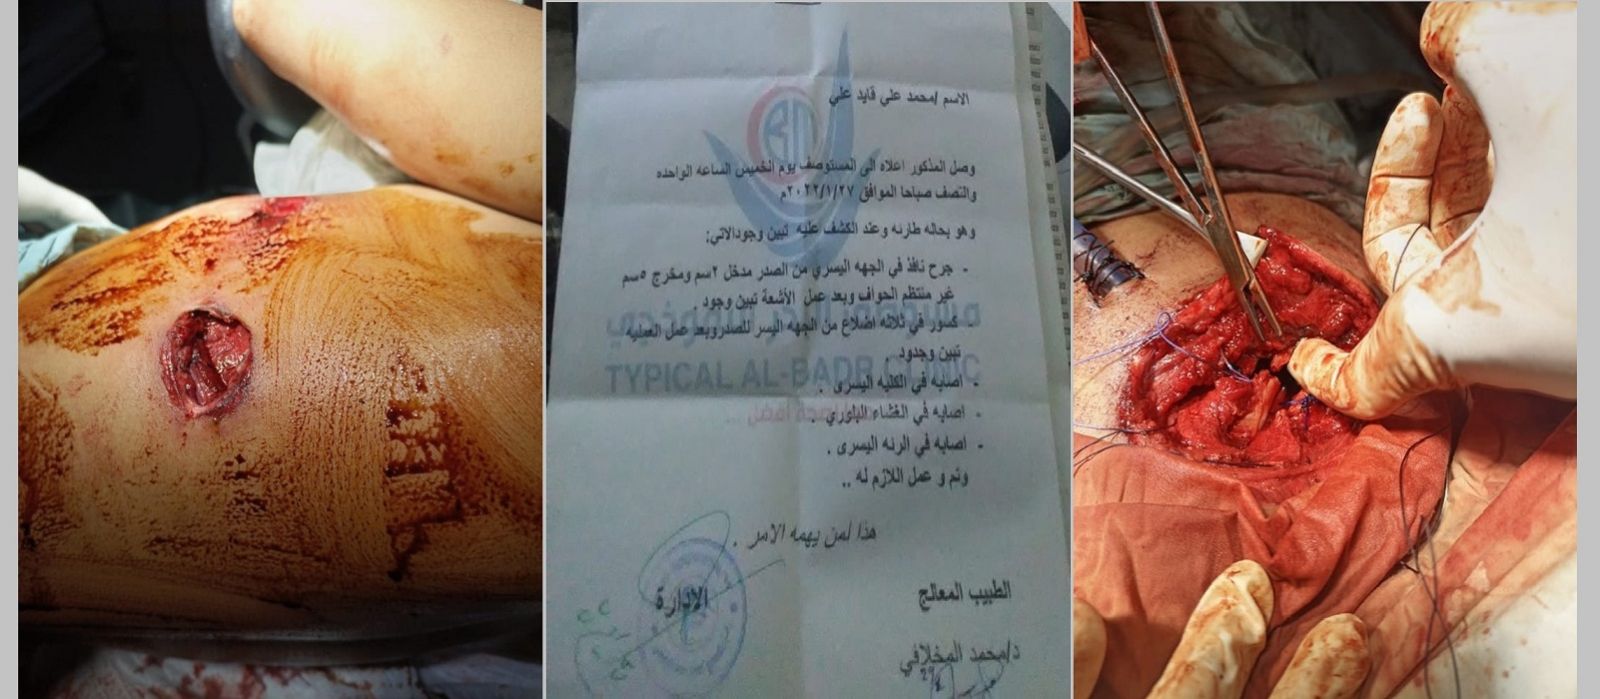 الاسم /محمد علي قايد علي
وصل المذكور اعلاه الى المستوصف يوم الخميس الساعه الواحده
والنصف صباحا الموافق ٢٠٢٢/١/٢٧م
وهو بحاله طارئه وعند الكشف عليه تبين وجودالاتي:
- جرح نافذ في الجهه اليسري من الصدر مدخل ٢سم ومخرج ٥سم
غير منتظم الحواف وبعد عمل الأشعة تبين وجود .
- كسور في ثلاثه اضلاع من الجهه اليسر للصدروبعد عمل العمليه
تبين وجدود
TYPICAL AL-BADR CLINIC
- اصابه في الكليه اليسرى .
- اصابه في الغشاء البلوري .
- اصابه في الرئه اليسرى .
وتم و عمل اللازم له ..
هذا لمن يهمه الامر .
الطبيب المعالج
الادارة
د/محمد المخلافي